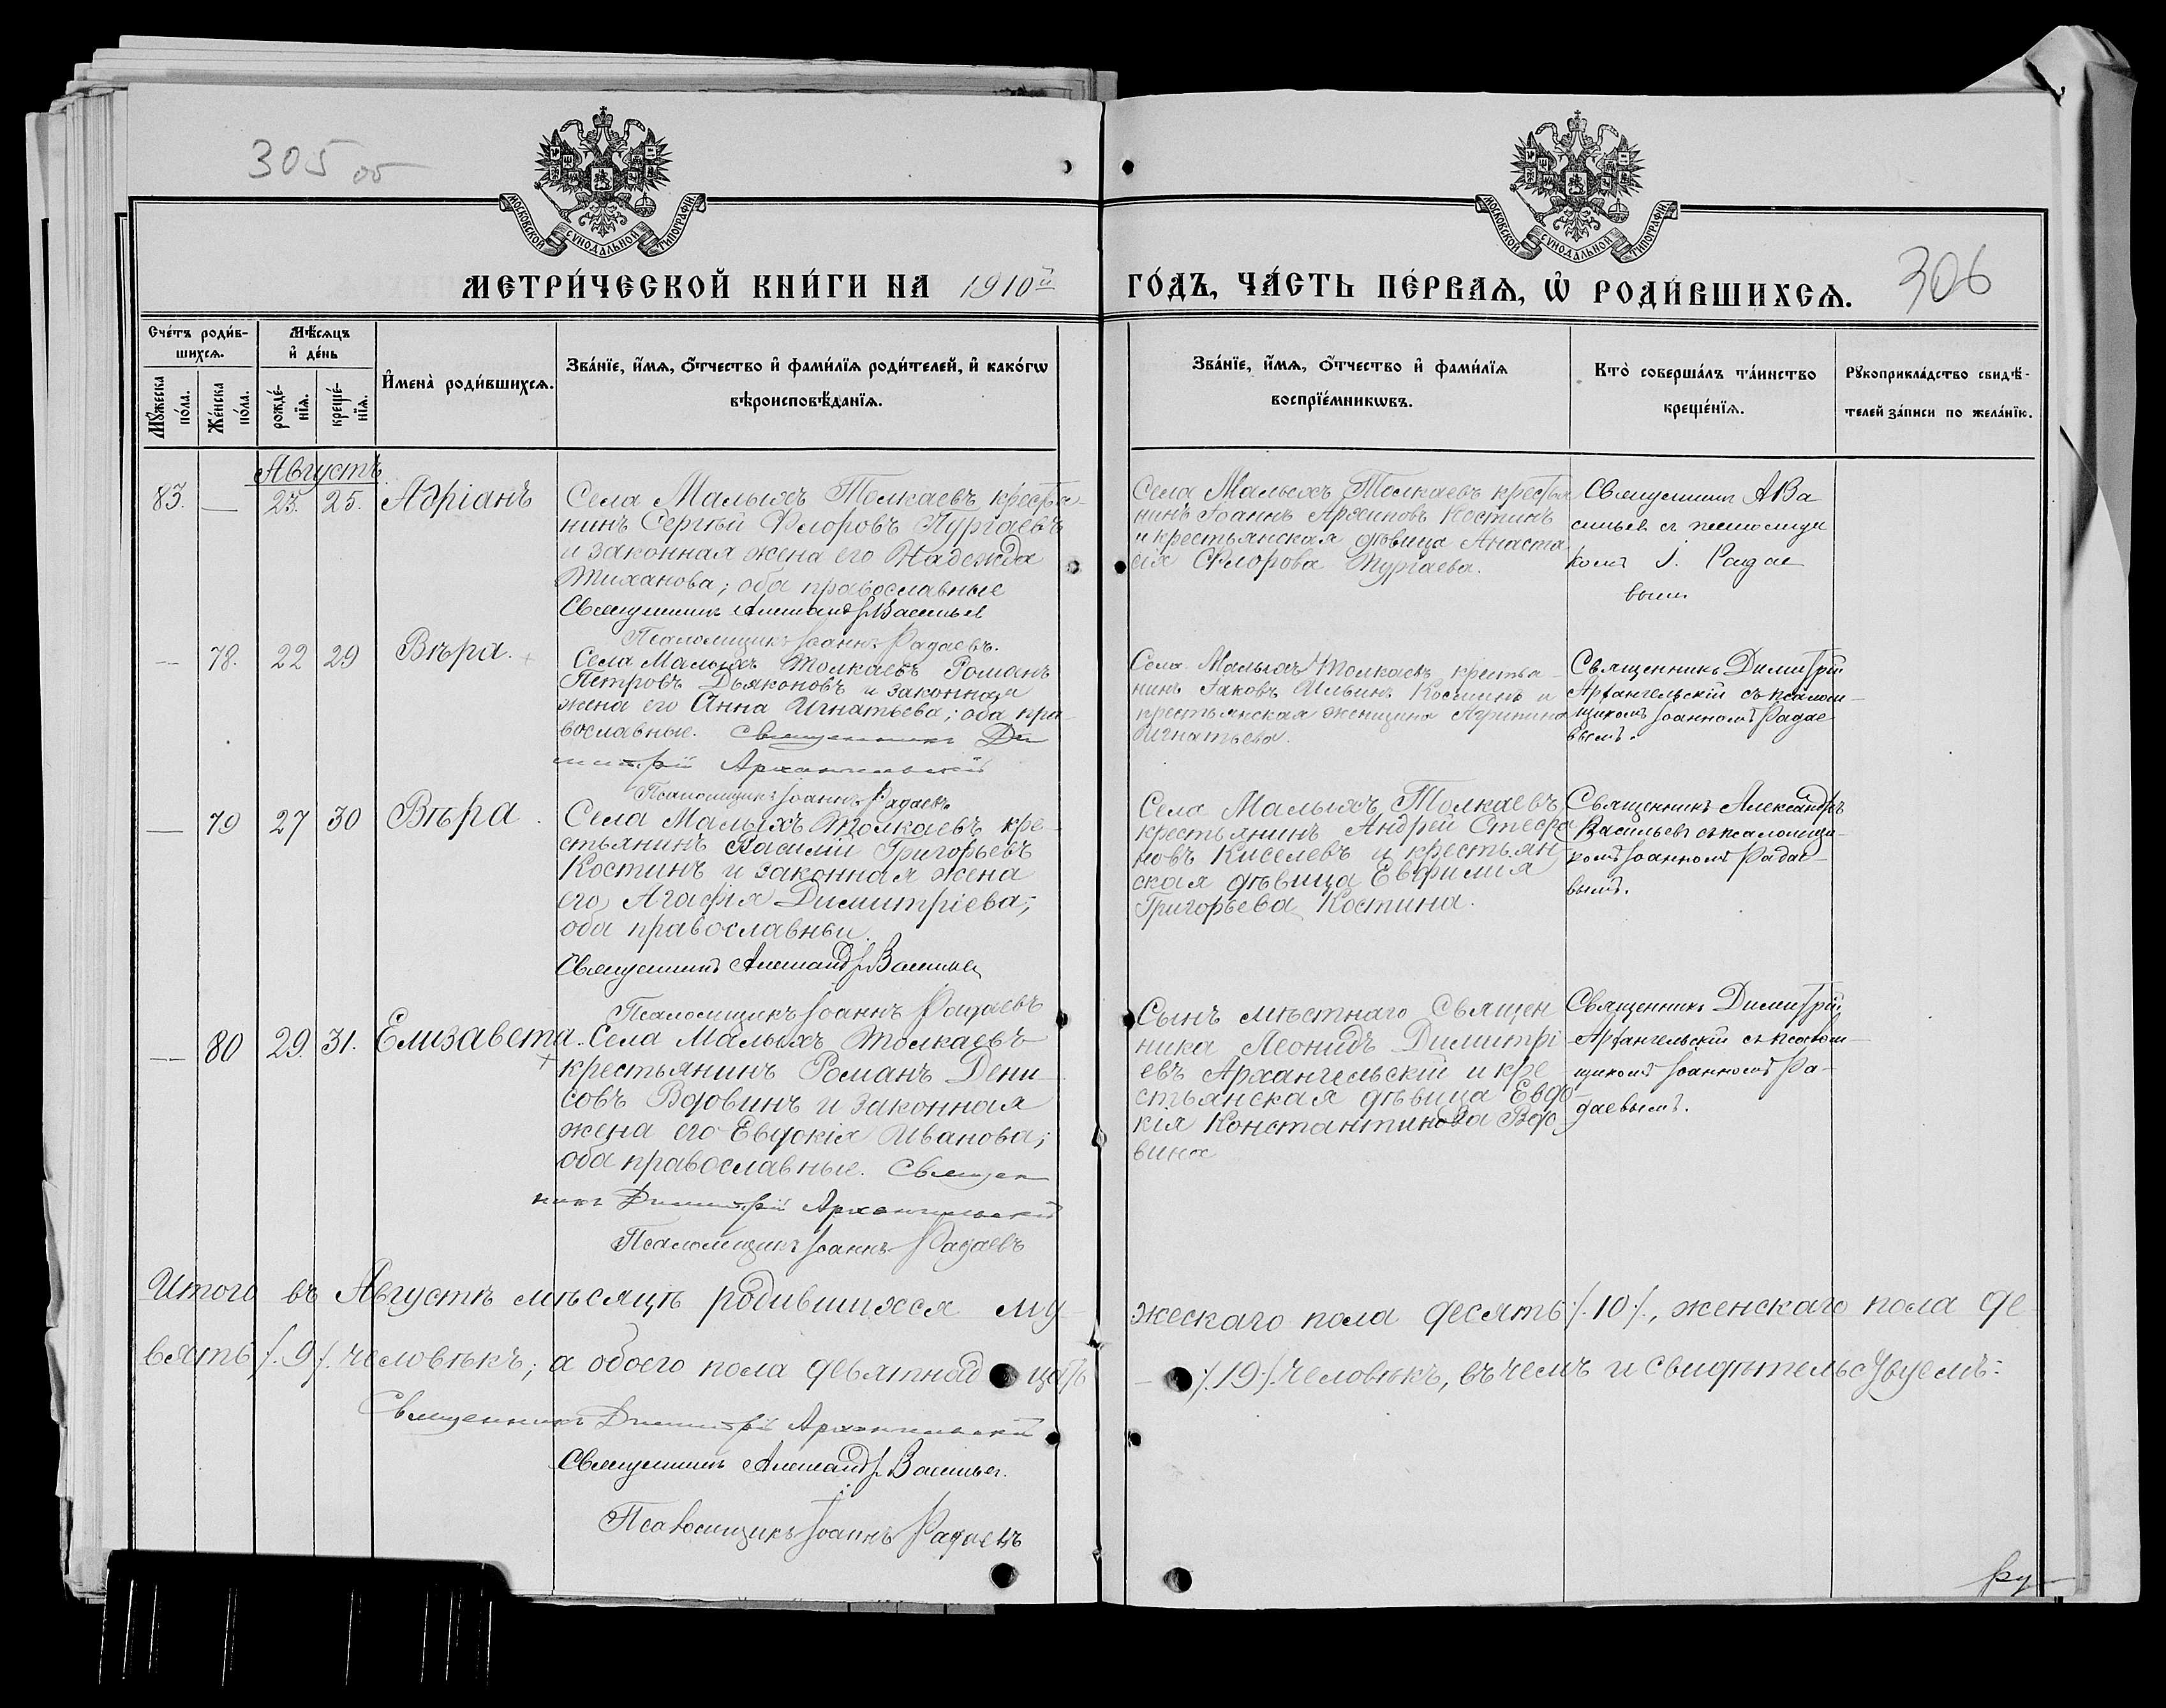 305 об
306
МОСКОВСКОЙ СѴНОДАЛЬНОЙ ТИПОГРАФІИ
МОСКОВСКОЙ СѴНОДАЛЬНОЙ ТИПОГРАФІИ
МЕТРИ́ЧЕСКОЙ КНИ́ГИ НА 1910й ГО́ДЪ, ЧА́СТЬ ПЕ́РВАѦ, Ѡ҆ РОДИ́ВШИХСѦ.
Сче́тъ роди́в-
шихсѧ.
Мѣ́сѧцъ
и҆ де́нь
Мꙋ́жеска
по́ла.
Же́нска
по́ла.
рожде́-
нїѧ.
креще́-
нїѧ.
И҆мена̀ роди́вшихсѧ.
Зва́нїе, и҆́мѧ, ѻ҆́тчество и҆ фами́лїѧ роди́телей, и҆ како́гѡ
вѣроисповѣ́данїѧ.
Зва́нїе, и҆́мѧ, ѻ҆́тчество и҆ фами́лїѧ
воспрїе́мникѡвъ.
Кто̀ соверша́лъ та́инство
креще́нїѧ.
Рꙋкоприкла́дство свидѣ́-
телей за́писи по жела́нїю.
Августъ.
83. — 23. 25. Адріанъ
Села Малыхъ Толкаевъ крестья-
нинъ Сергѣй Флоровъ Тургаевъ
и законная жена его Надежда
Тиханова; оба православные
Священникъ Александръ Васильев
Псаломщикъ Іоаннъ Радаевъ.
Села Малыхъ Толкаевъ крестья
нинъ Іоаннъ Архиповъ Костинъ
и крестьянская дѣвица Анаста
сія Флорова Тургаева.
Священникъ А Ва
сильев съ псаломщи
комъ І. Радае
вымъ
— 78. 22 29 Вѣра.
Села Малыхъ Толкаевъ Романъ
Петровъ Дьяконовъ и законная
жена его Анна Игнатьева; оба пра-
вославные. Священникъ Ди
митрій Архангельскій
Псаломщикъ Іоаннъ Радаевъ
Села Малыхъ Толкаевъ крестья-
нинъ Іаковъ Ильинъ Костинъ и
крестьянская женщина Агрипина
Игнатьева.
Священникъ Димитрій
Архангельскій съ псалом-
щикомъ Іоанномъ Радае-
вымъ.
— 79 27 30 Вѣра.
Села Малыхъ Толкаевъ кре-
стьянинъ Василій Григорьевъ
Костинъ и законная жена
его Агафія Димитріева;
оба православны.
Священникъ Александръ Васильев
Псаломщикъ Іоаннъ Радаевъ
Села Малыхъ Толкаевъ
крестьянинъ Андрей Стефа
новъ Киселевъ и крестьян
ская дѣвица Евфимія
Григорьева Костина.
Священникъ Александръ
Васильевъ съ псаломщи-
комъ Іоанномъ Радае-
вымъ.
— 80 29. 31. Елизавета.
Села Малыхъ Толкаевъ
крестьянинъ Романъ Дени-
совъ Вдовинъ и законная
жена его Евдокія Иванова;
оба православные. Священ
никъ Димитрій Архангельскій
Псаломщикъ Іоаннъ Радаевъ
Сынъ мѣстнаго Священ
ника Леонидъ Димитрі-
евъ Архангельскій и кре-
стьянская дѣвица Евдо-
кія Константинова Вдо-
вина
Священникъ Димитрій
Архангельскій съ псалом-
щикомъ Іоанномъ Ра-
даевымъ.
Итого въ Августѣ мѣсяцѣ родившихся му-
жескаго пола десять /.10./, женскаго пола де-
вять /.9./ человѣкъ; а обоего пола девятнадцать
— /.19./ человѣкъ, въ чемъ и свидѣтельствуемъ:
Священникъ Димитрій Архангельскій
Священникъ Александръ Васильев.
Псаломщикъ Іоаннъ Радаевъ